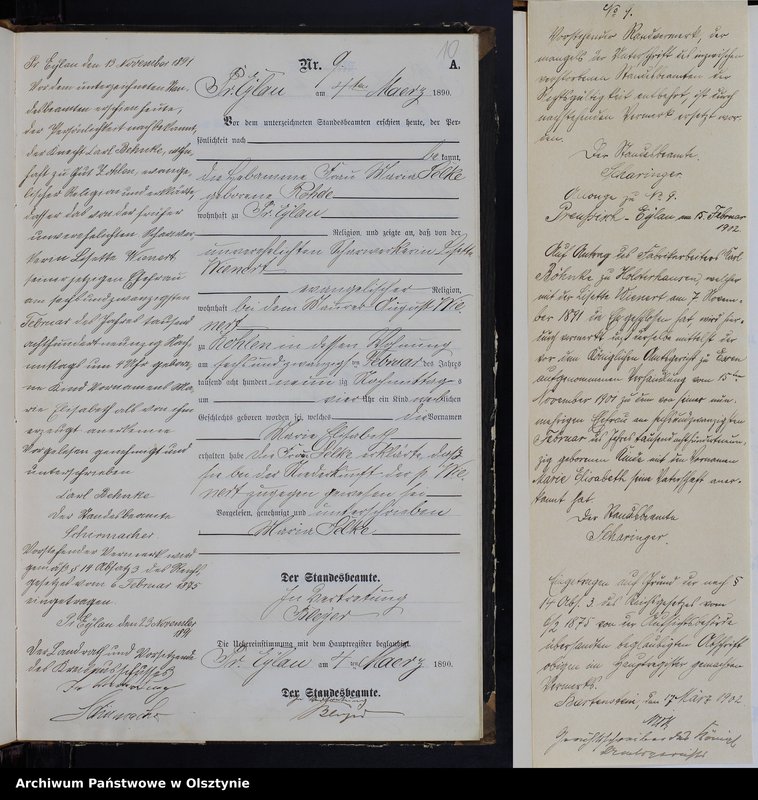 Pr. Eylau den 13. November 1891
Vor dem unterzeichneten Stan-
desbeamten erschien heute,
der Persönlichkeit nach bekannt,
der Knecht Carl Behnke, wohn-
haft zu Gut
lischer Religion und erklärte,
daß er das von der früher
unverehelichten Scharwer-
kerin Lisette Wienert
seiner jetzigen Ehefrau
am sechsundzwanzigsten
Februar des Jahres tausend
achthundert neunzig Nach-
mittags um 4 Uhr gebore-
ne Kind Vornamens Ma-
rie Elisabeth als von ihm
erzeugt anerkenne
Vorgelesen genehmigt und
unterschrieben
Carl Behnke
Der Standesbeamte
Schumacher
Vorstehender Vermerk wird
gemäß § 14 Absatz 3 des Reichs-
gesetzes vom 6 Februar 1875
eingetragen.
Pr. Eylau den 23 November
1891
Der Landrath und Vorsitzende
des Kreisausschusses
In Vertretung
10
Nr. 9.
A.
Pr. Eylau am ten Maerz 1890.
Vor dem unterzeichneten Standesbeamten erschien heute, der Per-
sönlichkeit nach
be kannt,
die Hebamme Frau Maria Selke
geborene Rohde
wohnhaft zu Pr. Eylau
Religion, und zeigte an, daß von der
unverehelichten Scharwerkerin Lisette
Wienert
evangelischer Religion,
wohnhaft bei dem Maurer August Wie-
nert
zu Rohlen in dessen Wohnung
am sechsundzwanzigsten Februar des Jahres
tausend acht hundert neun zig Nachmittags
um vier Uhr ein Kind weiblichen
Geschlechts geboren worden sei, welches die Vornamen
Marie Elisabeth
erhalten habe. Die Frau Selke erklärte daß
sie bei der Niederkunft der p. Wie-
nert zugegen gewesen sei
Vorgelesen, genehmigt und unterschrieben
Maria Selke
Der Standesbeamte.
In Vertretung
Die Uebereinstimmung mit dem Hauptregister beglaubigt.
Pr. Eylau am 4 ten Maerz 1890.
Der Standesbeamte.
In Vertretung
No 9.
Vorstehender Randvermerk, der
mangels der Unterschrift des inzwischen
verstorbenen Standesbeamten der
Rechtsgültigkeit entbehrt, ist durch
nachstehenden Vermerk ersetzt wor-
den.
Der Standesbeamte.
Scharinger.
zu No 9.
Preussisch-Eylau am 15. Februar
1902.
Auf Antrag des Fabrikarbeiters Karl
Böhnke zu Holsterhausen, welcher
mit der Lisette Wienert am 7 Novem-
ber 1891 die Ehe geschlossen hat wird hier-
durch vermerkt, daß derselbe mittelst der
vor dem Königlichen Amtsgericht zu
aufgenommenen Verhandlung vom 15ten
November 1901 zu dem von seiner nun-
mehrigen Ehefrau am sechsundzwanzigsten
Februar des Jahres tausendachthundertneun-
zig geborenen Kinde mit den Vornamen
Marie Elisabeth seine Vaterschaft aner-
kannt hat.
Der Standesbeamte
Scharinger.
Eingetragen auf Grund der nach §
14 Abs. 3. des Reichsgesetzes vom
6/2 1875 von der Aufsichtsbehörde
übersandten beglaubigten Abschrift
obigen im Hauptregister gemachten
Vermerks.
Bartenstein, den 17 März 1902.
Gerichtsschreiber des Königl.
Amtsgerichts
Archiwum Państwowe w Olsztynie